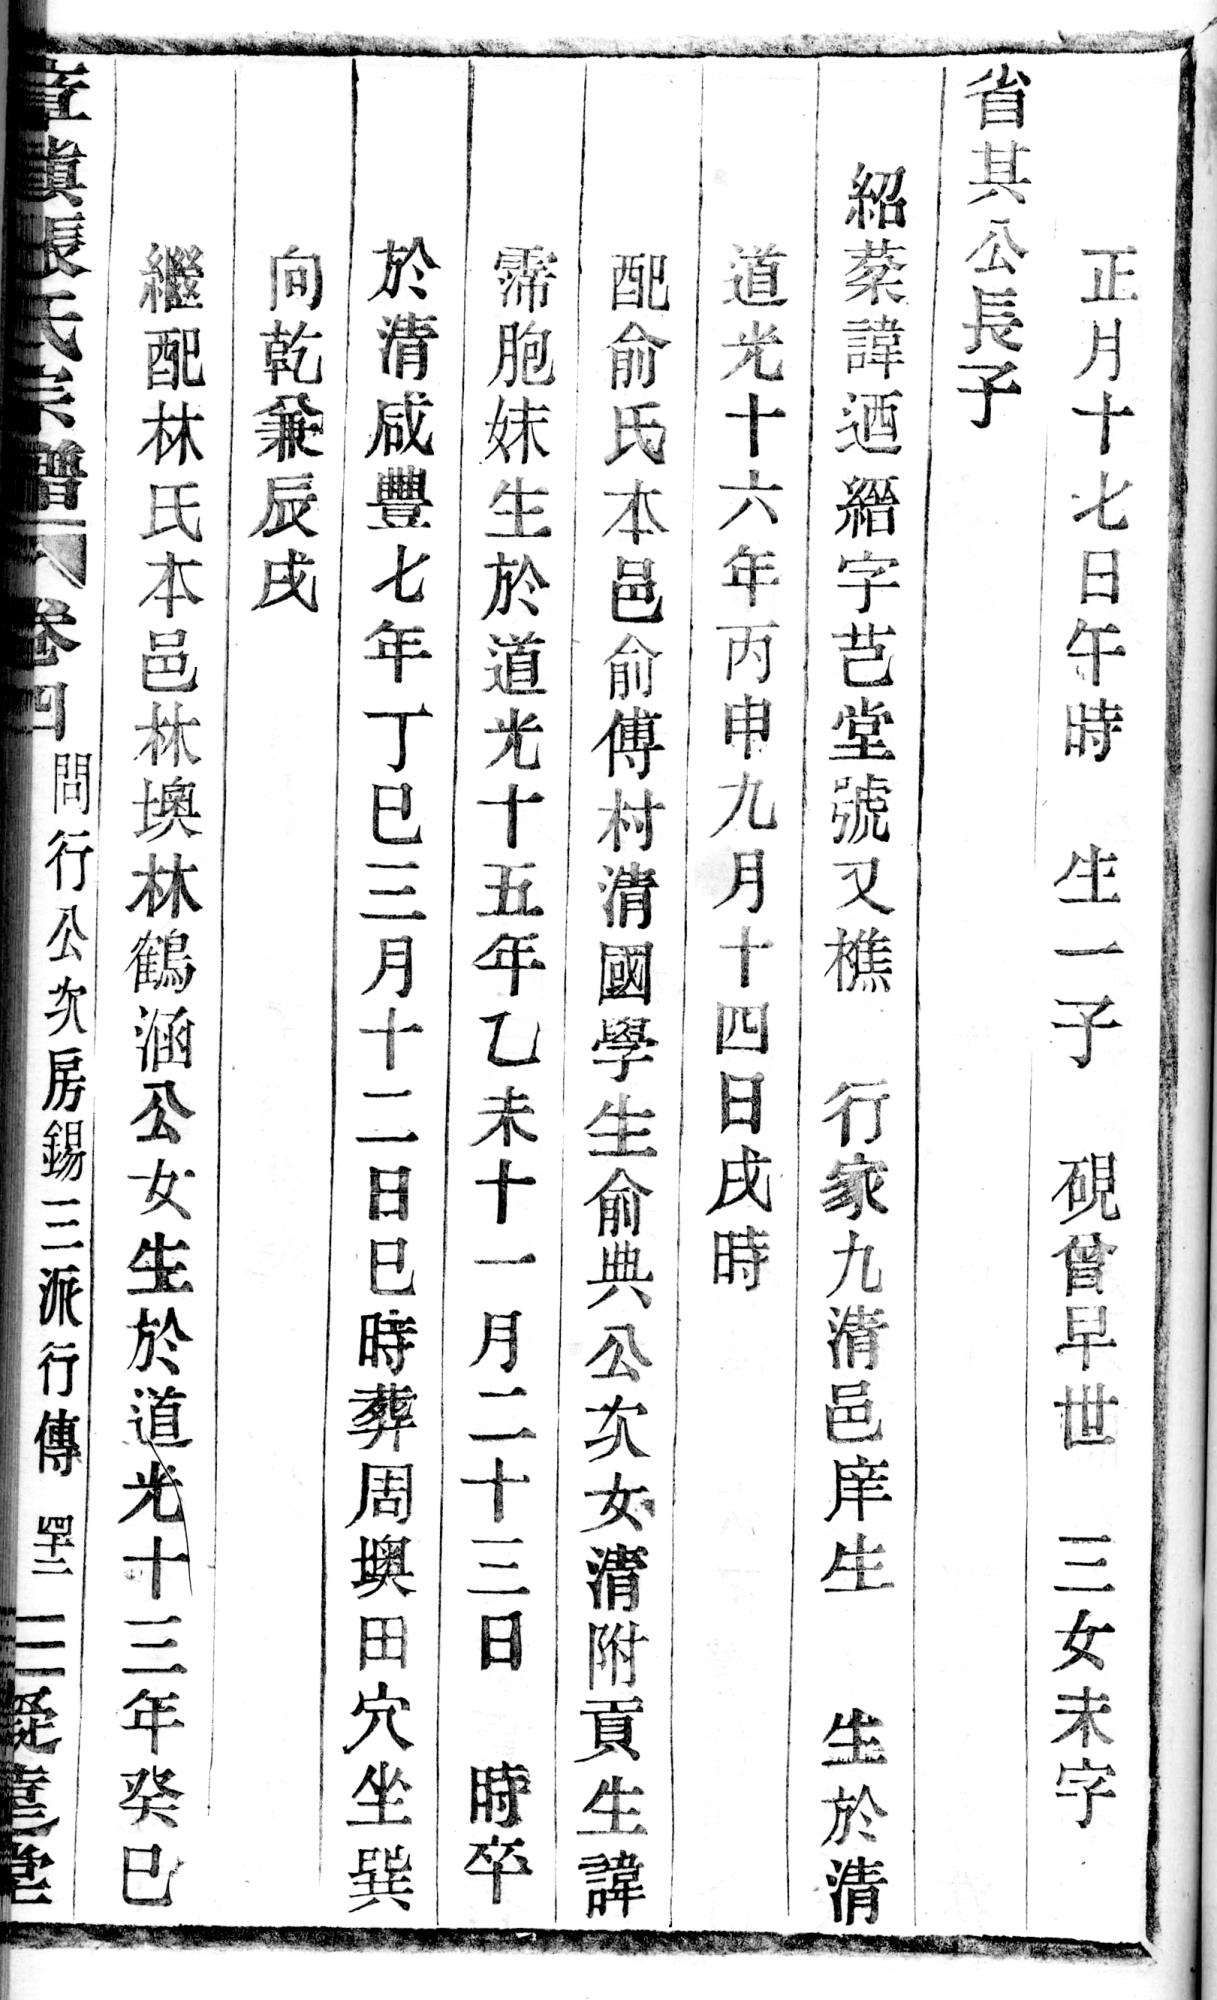 正月十七日午時　生一子　硯曾早世　三女未字
省其公長子
紹蔾諱迺縉字芑堂號又樵　行家九清邑庠生　生於清
道光十六年丙申九月十四日戌時
配俞氏本邑俞傅村清國學生俞典公次女清附貢生諱
霈胞妹生於道光十五年乙未十一月二十三日　時卒
於清咸豐七年丁巳三月十二日巳時葬周墺田穴坐巽
向乾兼辰戌
繼配林氏本邑林墺林鶴涵公女生於道光十三年癸巳
張氏宗譜　卷四　問行公次房錫三派行傳　堂